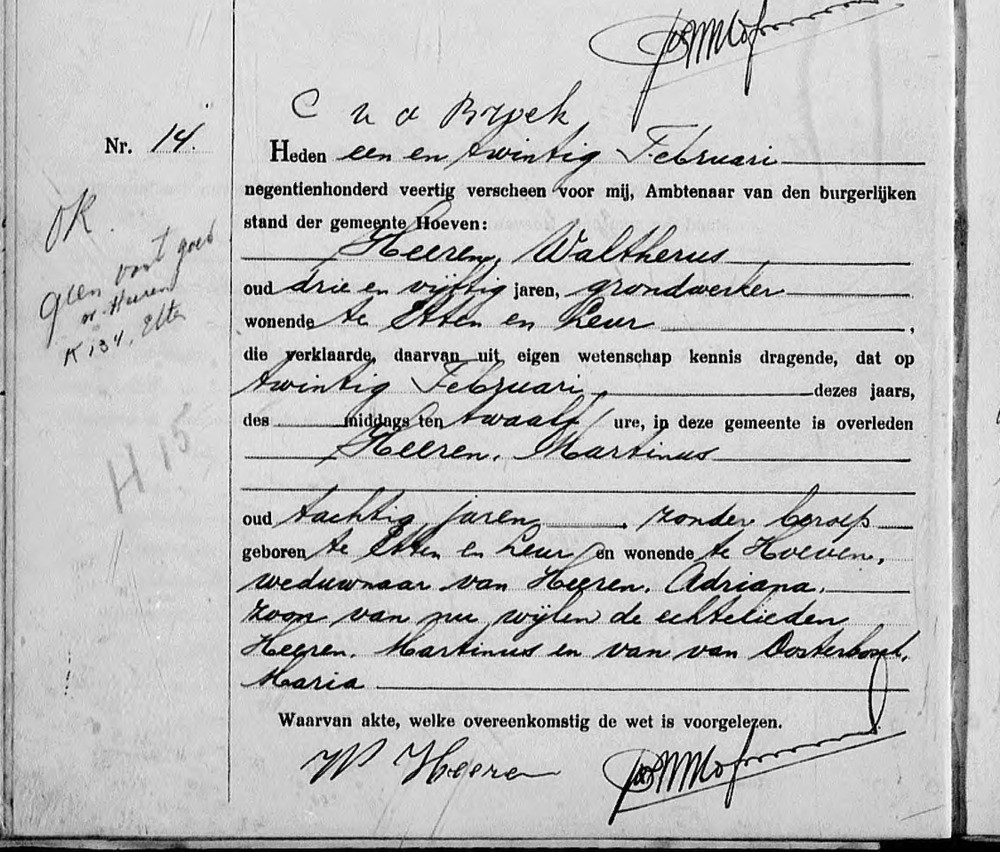 C v d Broek
Nr. 14.
Heden een en twintig Februari
negentienhonderd veertig verscheen voor mij, Ambtenaar van den burgerlijken
stand der gemeente Hoeven:
Heeren, Waltherus
oud drie en vijftig jaren, grondwerker
wonende te Etten en Leur,
die verklaarde, daarvan uit eigen wetenschap kennis dragende, dat op
twintig Februari, dezes jaars,
des middags ten twaalf ure, in deze gemeente is overleden
Heeren, Martinus
oud tachtig jaren, zonder beroep
geboren te Etten en Leur en wonende te Hoeven,
weduwnaar van Heeren, Adriana,
zoon van nu wijlen de echtelieden
Heeren, Martinus en van van Oosterbosch,
Maria
Waarvan akte, welke overeenkomstig de wet is voorgelezen.
W Heeren
OK.
geen vast goed
Heeren
K 134, Etten
H 15